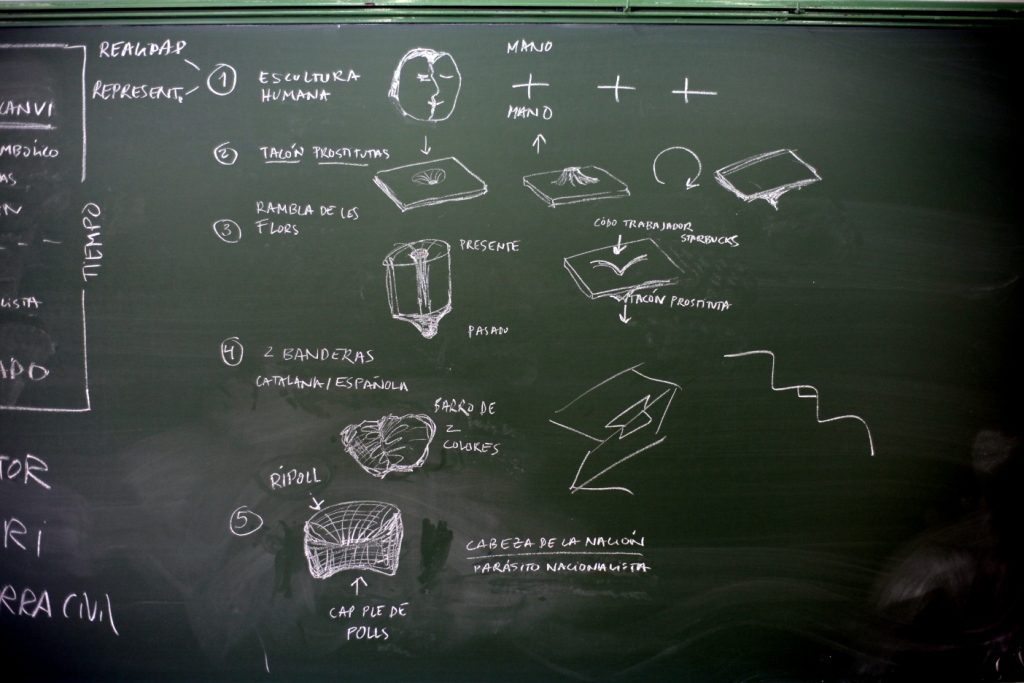 REALIDAD
REPRESENT.
1
ESCULTURA
HUMANA
MANO
+ + +
MANO
2
TACÓN PROSTITUTAS
3
RAMBLA DE LES
FLORS
PRESENTE
PASADO
CODO TRABAJADOR
STARBUCKS
TACÓN PROSTITUTA
4
2 BANDERAS
CATALANA/ESPAÑOLA
BARRO DE
2
COLORES
5
RIPOLL
CAP PLE DE
POLLS
CABEZA DE LA NACIÓN
PARÁSITO NACIONALISTA
TIEMPO
CANVI
MBÓLICO
AS
N
LISTA
ADO
TOR
RI
RRA CIVIL